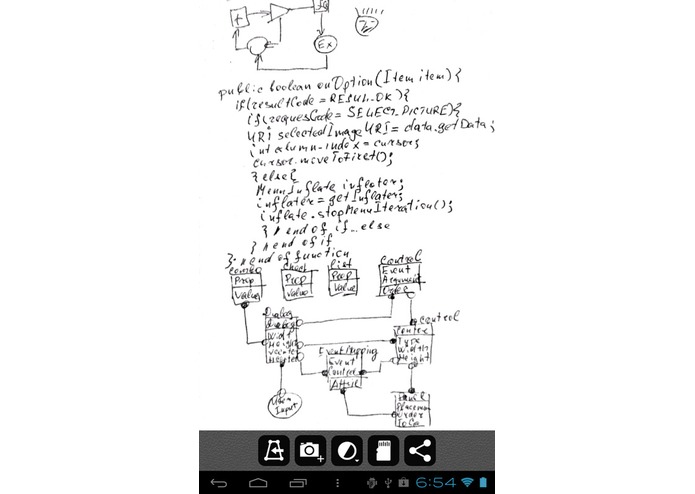 Ex
public boolean onOption(Item item){
if(resultCode = RESUL_OK){
if(requesCode = SELECT_PICTURE){
URI selectedImageURI = data.getData;
int column_index = cursor;
cursor.moveToFirst();
}else{
MenuInflate inflator;
inflater = getInflater;
inflate.stopMenuIteration();
} // end of if...else
} // end of if
} // end of function
combo
Prop
Value
Prop
Value
list
Prop
Value
Control
Event
Argument
Dialog
Dialog
Width
Height
control
Type
Width
Height
Event Mapping
Event
Control
User
Input
6:54